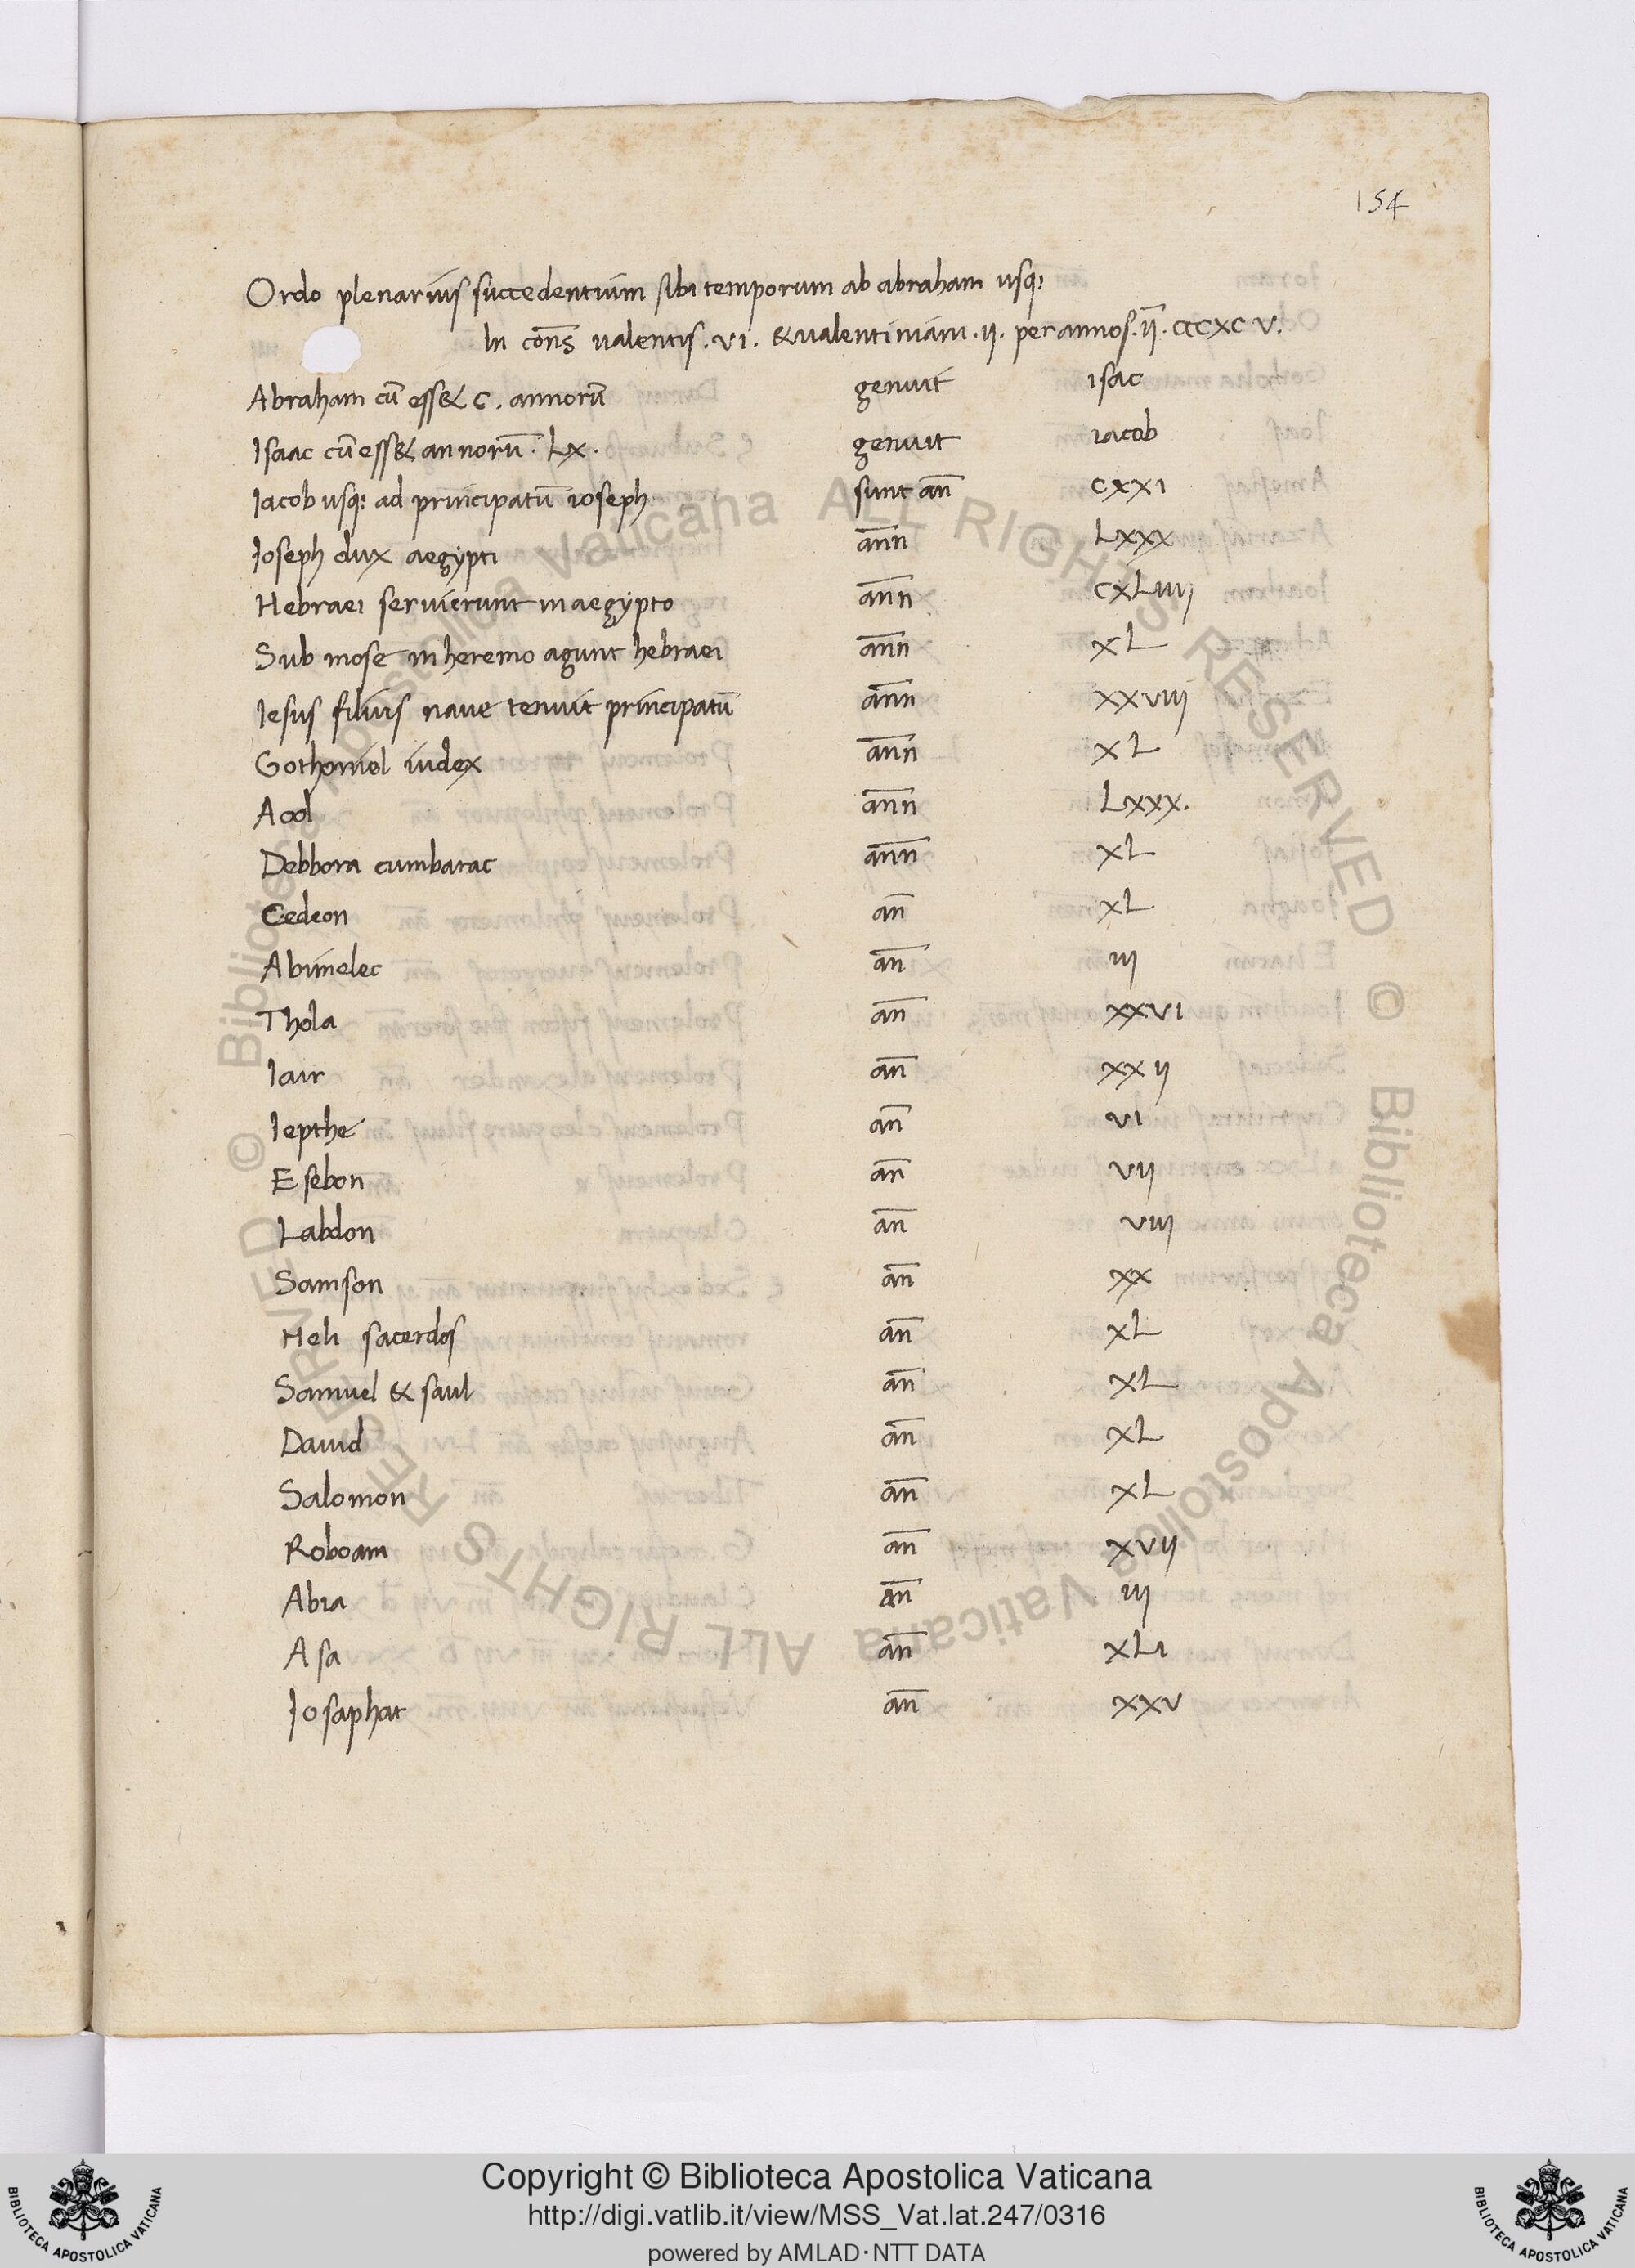 154
Ordo plenarius succedentium sibi temporum ab abraham usq:
In cons̄ ualentis .VI. & ualentiniani .II. per annos .II̅. CCCXCV.
Abraham cū ess& C. annorū genuit isac
Isaac cū ess& annorū. LX. genuit iacob
Iacob usq: ad principatū ioseph sunt an̄ CXXI
Ioseph dux aegypti an̄n LXXX
Hebraei seruierunt in aegypto an̄n CXLIIII
Sub mose in heremo agunt hebraei an̄n XL
Iesus filius naue tenuit principatū an̄n XXVIII
Gothoniel iudex an̄n XL
Aod an̄n LXXX.
Debbora cumbarac an̄n XL
Cedeon an̄ XL
Abimelec an̄ III
Thola an̄ XXVI
Iair an̄ XXII
Iepthe an̄ VI
Esebon an̄ VII
Labdon an̄ VIII
Samson an̄ XX
Heli sacerdos an̄ XL
Samuel & saul an̄ XL
Dauid an̄ XL
Salomon an̄ XL
Roboam an̄ XVII
Abia an̄ III
Asa an̄ XLI
Iosaphat an̄ XXV
© Biblioteca Apostolica Vaticana ALL RIGHTS RESERVED © Biblioteca Apostolica Vaticana ALL RIGHTS RESERVED
Copyright © Biblioteca Apostolica Vaticana
http://digi.vatlib.it/view/MSS_Vat.lat.247/0316
powered by AMLAD·NTT DATA
BIBLIOTECA APOSTOLICA VATICANA
BIBLIOTECA APOSTOLICA VATICANA